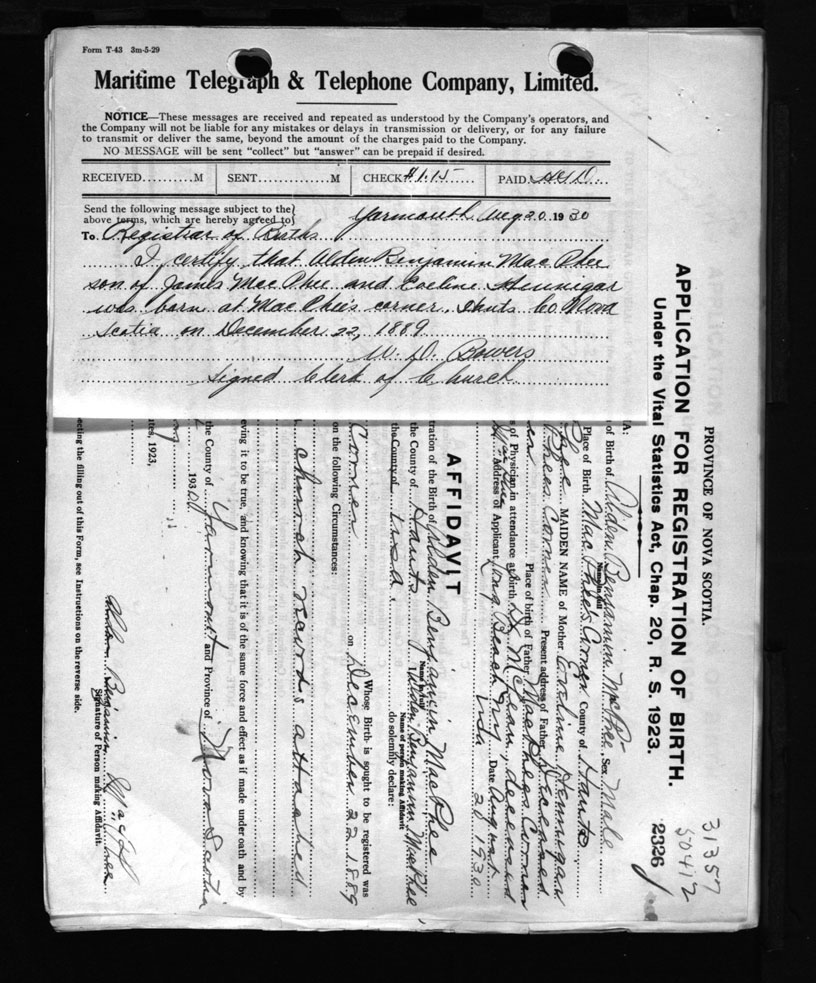 Form T-43 3m-5-29
Maritime Telegraph & Telephone Company, Limited.
NOTICE—These messages are received and repeated as understood by the Company's operators, and
the Company will not be liable for any mistakes or delays in transmission or delivery, or for any failure
to transmit or deliver the same, beyond the amount of the charges paid to the Company.
NO MESSAGE will be sent "collect" but "answer" can be prepaid if desired.
RECEIVED..........M SENT..............M CHECK $1.15 PAID
Send the following message subject to the
above terms, which are hereby agreed to
Yarmouth Aug 20 1930
To Registrar of Births
I certify that Alden Benjamin Mac Phee
son of James Mac Phee and Eveline Hennigar
was born at Mac Phee's corner Hants Co Nova
Scotia on December 22, 1889
W. D. Bowers
Signed Clerk of Church
PROVINCE OF NOVA SCOTIA.
APPLICATION FOR REGISTRATION OF BIRTH.
Under the Vital Statistics Act, Chap. 20, R. S. 1923.
31357
50412
2326
A:
of Birth of Alden Benjamin McPhee Sex Male
Name in full
Place of Birth Mac Phee's Corner County of Hants
Phee MAIDEN NAME of Mother Eveline Hennigar
Phees Corner Present address of Father Deceased
Place of birth of Father MacPhees Corner
s of Physician in attendance at birth D McLean, deceased
Address of Applicant Long Beach Date August
20 1930
AFFIDAVIT
tration of the Birth of Alden Benjamin MacPhee
Name in full
the County of Hants Alden Benjamin MacPhee
Name of person making Affidavit
the County of U.S.A. do solemnly declare:
Whose Birth is sought to be registered was
Corner on December 22 1889
on the following Circumstances:
church records attached
eving it to be true, and knowing that it is of the same force and effect as if made under oath and by
the County of Yarmouth and Province of Nova Scotia
1930
utes, 1923,
Alden Benjamin MacPhee
Signature of Person making Affidavit.
ecting the filling out of this Form, see Instructions on the reverse side.